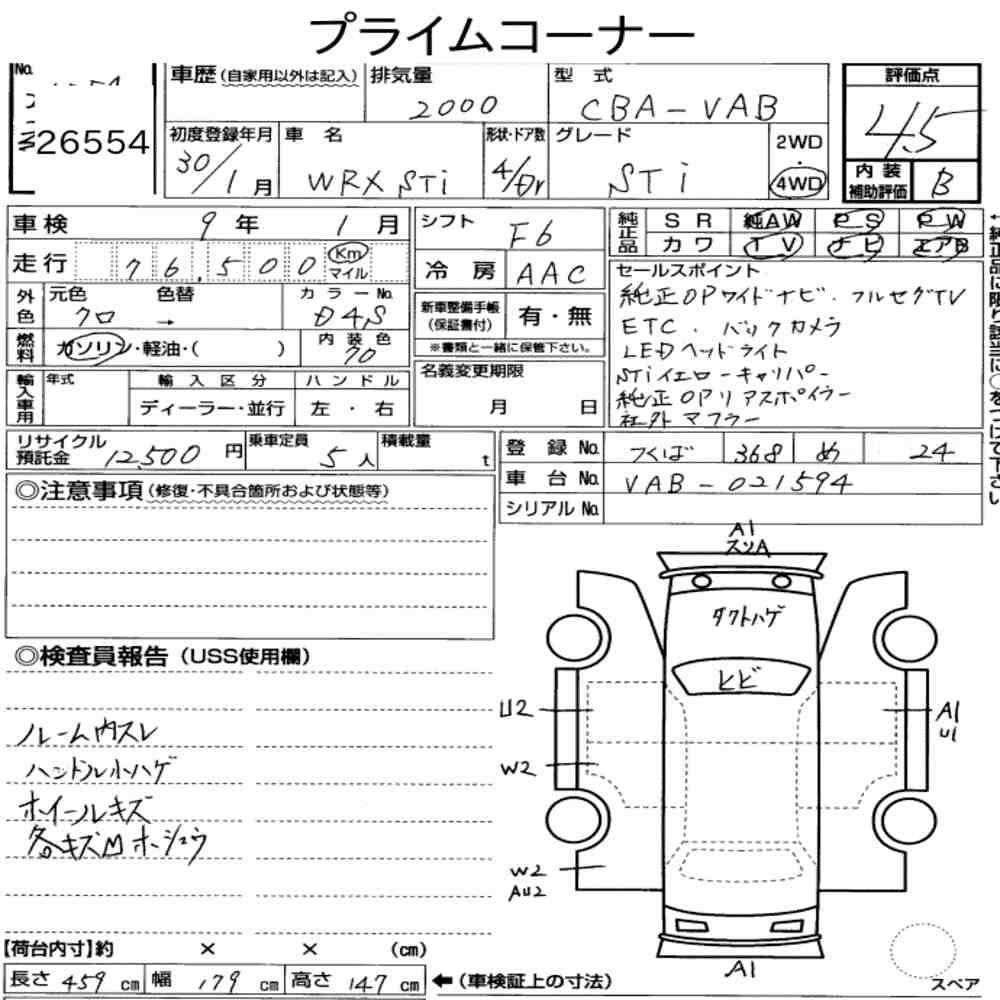 プライムコーナー
No.
26554
車歴 (自家用以外は記入)
排気量
2000
型 式
CBA-VAB
評価点
45
初度登録年月
30/1月
車 名
WRX STi
形状・ドア数
4/Dr
グレード
STi
2WD
・
4WD
内装
補助評価
B
車検 9年 1月
走行 76,500 Km
マイル
シフト F6
冷房 AAC
純正品
SR 純AW PS PW
カワ TV ナビ エアB
外色
元色 色替
クロ →
カラーNo.
D4S
新車整備手帳
(保証書付)
有・無
※書類と一緒に保管下さい。
セールスポイント
純正OPワイドナビ・フルセグTV
ETC. バックカメラ
LEDヘッドライト
STiイエローキャリパー
純正OPリアスポイラー
社外マフラー
燃料
ガソリン・軽油・( )
内装色
70
名義変更期限
月 日
輸入車用
年式
輸入区分
ディーラー・並行
ハンドル
左・右
リサイクル
預託金 12,500円
乗車定員
5人
積載量
t
登録No. つくば 368 め 24
車台No. VAB-021594
シリアルNo.
◎注意事項 (修復・不具合箇所および状態等)
◎検査員報告 (USS使用欄)
ルーム内スレ
ハンドル小ハゲ
ホイールキズ
各キズ凹ホシュウ
A1
スソA
ダクトハゲ
ヒビ
U2
W2
W2
AU2
A1
U1
A1
スペア
【荷台内寸】約 × × (cm)
長さ 459 cm 幅 179 cm 高さ 147 cm ←(車検証上の寸法)